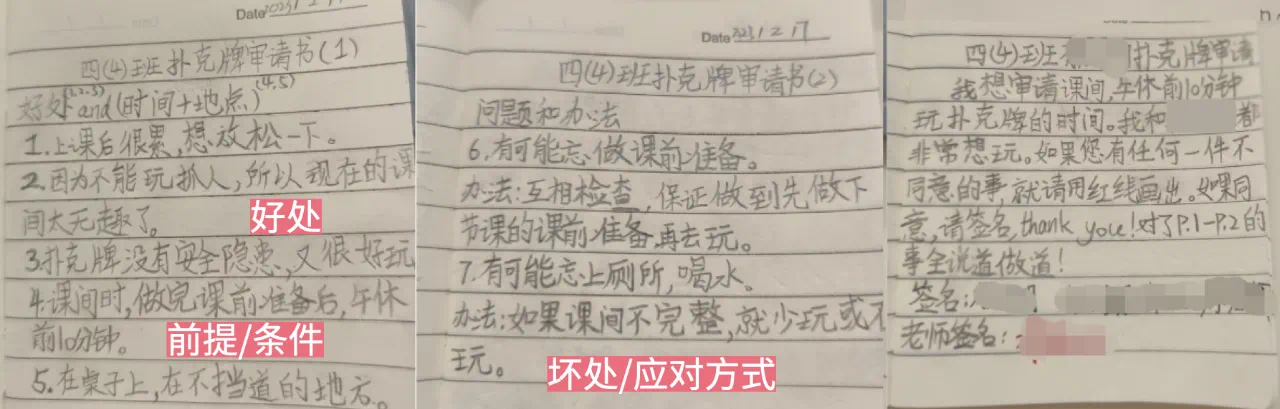 Date 2023 1 2 1
四(4)班扑克牌审请书(1)
好处(1.2.3) and (时间+地点)(4.5)
1.上课后很累,想放松一下。
2.因为不能玩抓人,所以现在的课
间太无趣了。
好处
3.扑克牌没有安全隐患,又很好玩
4.课间时,做完课前准备后,午休
前10分钟。
前提/条件
5.在桌子上,在不挡道的地方。
Date 2023 1 2 17
四(4)班扑克牌审请书(2)
问题和办法
6.有可能忘做课前准备。
办法:互相检查,保证做到先做下
节课的课前准备,再去玩。
7.有可能忘上厕所,喝水。
办法:如果课间不完整,就少玩或不
玩。
坏处/应对方式
四(4)班 扑克牌审请
我想审请课间,午休前10分钟
玩扑克牌的时间。我和 都
非常想玩。如果您有任何一件不
同意的事,就请用红线画出。如果同
意,请签名,thank you!对了P.1-P.2的
事全说道做道!
签名:
老师签名: